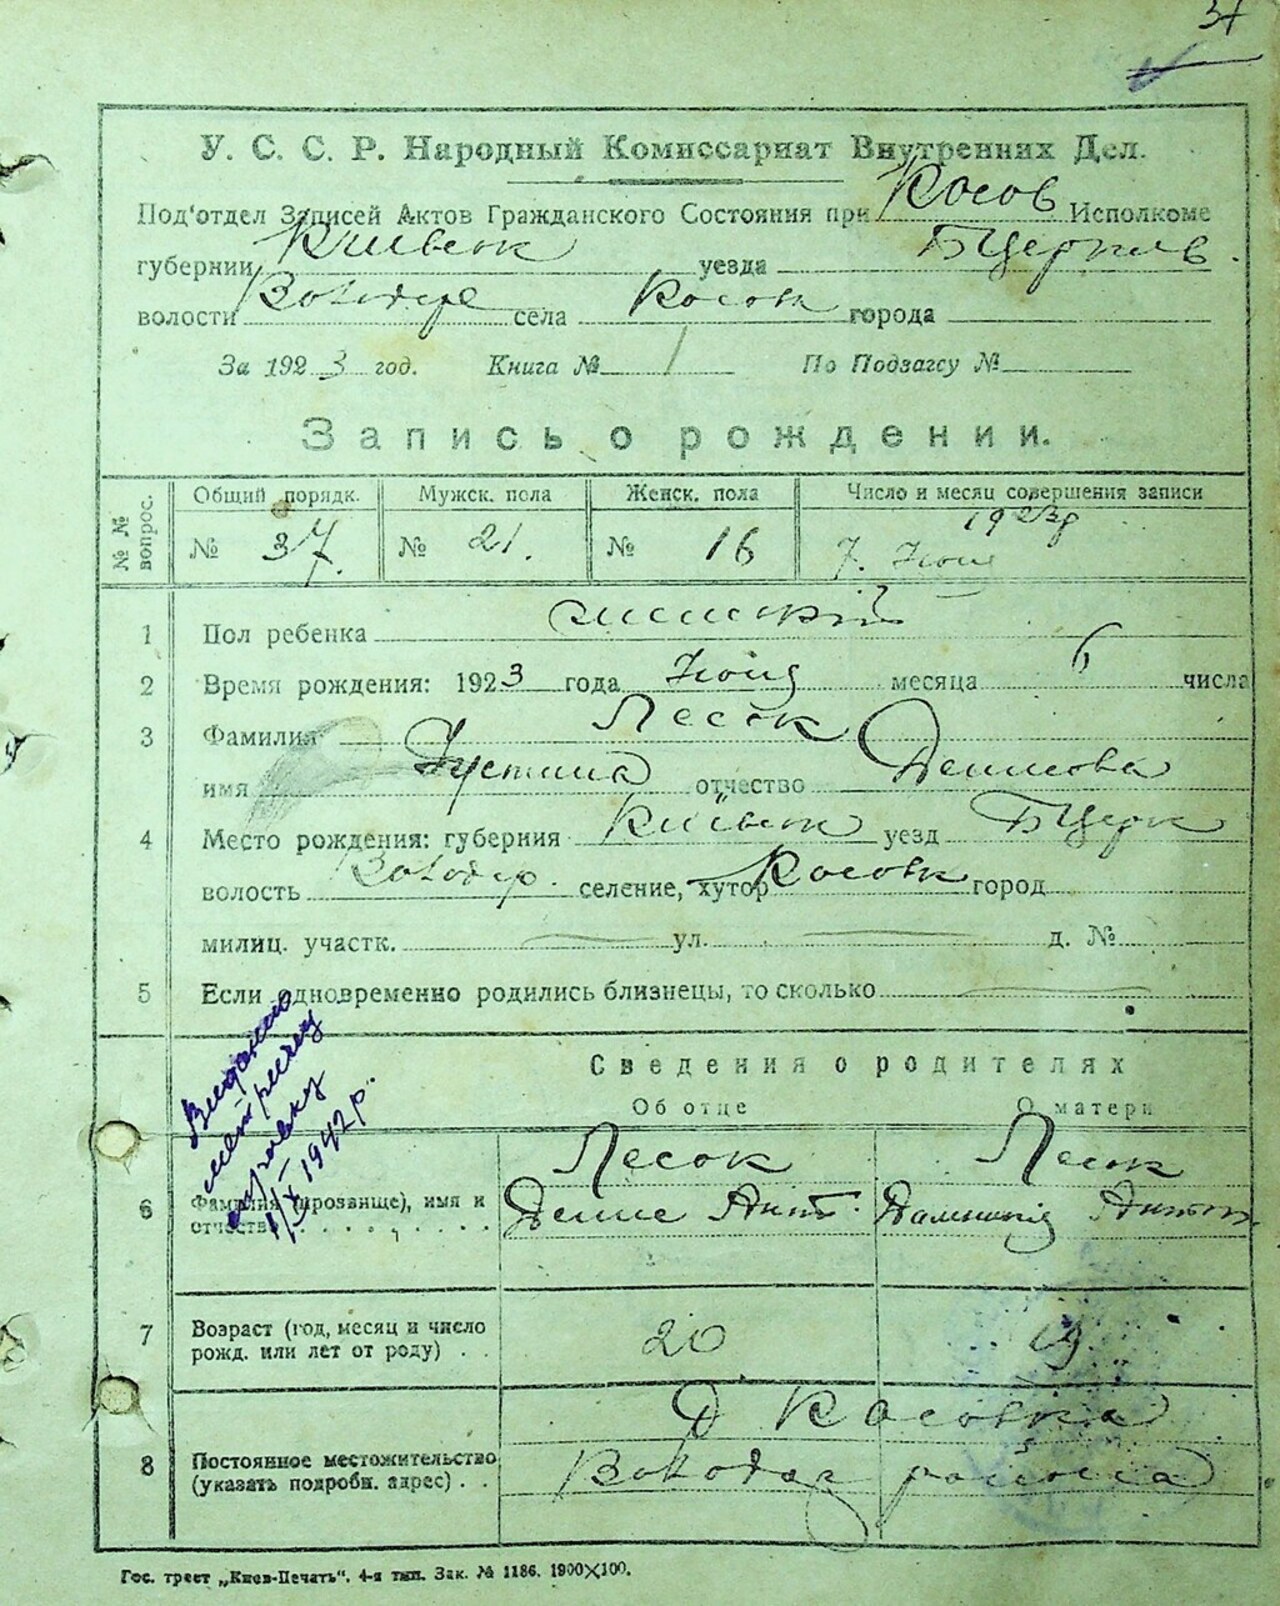 37
У. С. С. Р. Народный Комиссариат Внутренних Дел.
Под'отдел Записей Актов Гражданского Состояния при Косов Исполкоме
губернии Київськ уезда БЦерков.
волости Володар села Косовк города
За 1923 год. Книга № 1 По Подзагсу №
Запись о рождении.
№ № вопрос. Общий порядк. Мужск. пола Женск. пола Число и месяц совершения записи
№ 37. № 21. № 16 1923р 7. Июня
1 Пол ребенка женский
2 Время рождения: 1923 года Июня месяца 6 числа
3 Фамилия Песок
имя Устина отчество Денисова
4 Место рождения: губерния Київськ уезд БЦерк
волость Володар. селение, хутор Косовк город
милиц. участк. ул. д. №
5 Если одновременно родились близнецы, то сколько
Видано
метричну
справку
1/IX 1942 р.
Сведения о родителях
Об отце О матери
Песок Песок
6 Фамилия (прозвище), имя и Денис Ант. Антон.
отчество
7 Возраст (год, месяц и число 20 19.
рожд. или лет от роду)
Д Косовка
8 Постоянное местожительство Володар района
(указать подробн. адрес)
Гос. трест „Киев-Печать“. 4-я тип. Зак. № 1186. 1900×100.